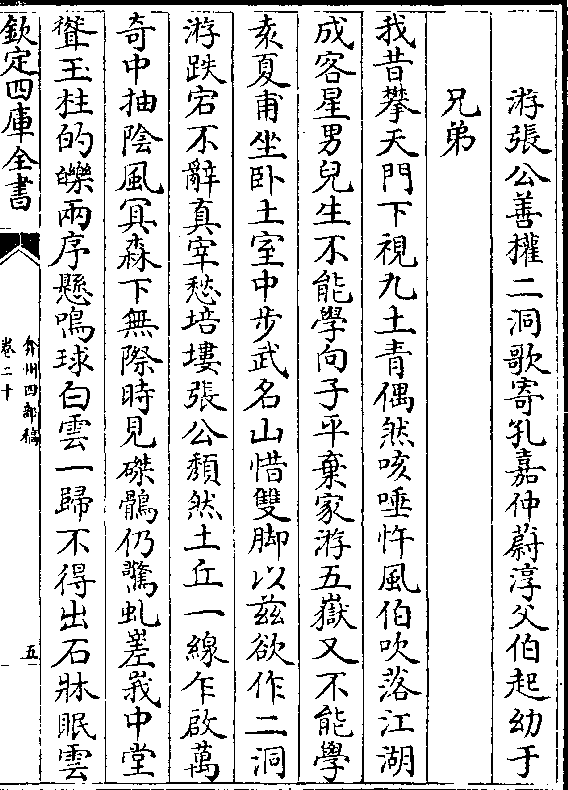 游張公善權二洞歌寄孔嘉仲蔚淳父伯起幼于
兄弟
我昔攀天門下視九土青偶然咳唾忤風伯吹落江湖
成客星男兒生不能學向子平棄家游五嶽又不能學
袁夏甫坐卧土室中步武名山惜雙脚以兹欲作二洞
游跌宕不辭真宰愁培塿張公頽然土丘一線乍啟萬
奇中抽陰風冥森下無際時見磔鶻仍驚虬差峩中堂
聳玉柱的皪兩序懸鳴球白雲一歸不得出石牀眠雲
欽定四庫全書
弇州四部稿
卷二十
五